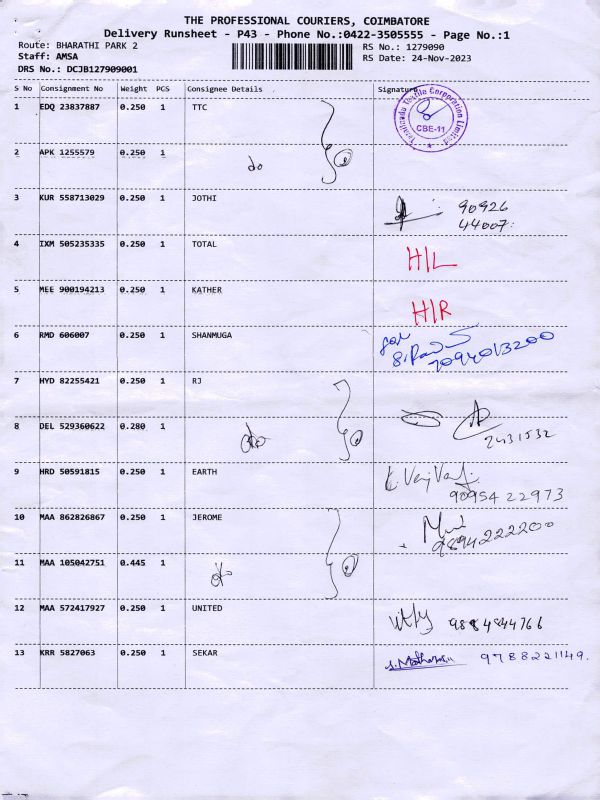 THE PROFESSIONAL COURIERS, COIMBATORE
Delivery Runsheet - P43 - Phone No.:0422-3505555 - Page No.:1
Route: BHARATHI PARK 2
RS No.: 1279090
Staff: AMSA
RS Date: 24-Nov-2023
DRS No.: DCJB127909001
S No Consignment No Weight PCS Consignee Details Signature
1 EDQ 23837887 0.250 1 TTC
Tamilnadu Textile Corporation Limited
CBE-11
2 APK 1255579 0.250 1 do 2
3 KUR 558713029 0.250 1 JOTHI 90926
44007
4 IXM 505235335 0.250 1 TOTAL H/L
5 MEE 900194213 0.250 1 KATHER H/R
6 RMD 606007 0.250 1 SHANMUGA for
7094013200
7 HYD 82255421 0.250 1 RJ
8 DEL 529360622 0.280 1 do 2 2431532
9 HRD 50591815 0.250 1 EARTH
90954 22973
10 MAA 862826867 0.250 1 JEROME
9894222200
11 MAA 105042751 0.445 1 do 2
12 MAA 572417927 0.250 1 UNITED 9884844766
13 KRR 5827063 0.250 1 SEKAR 9788221149.